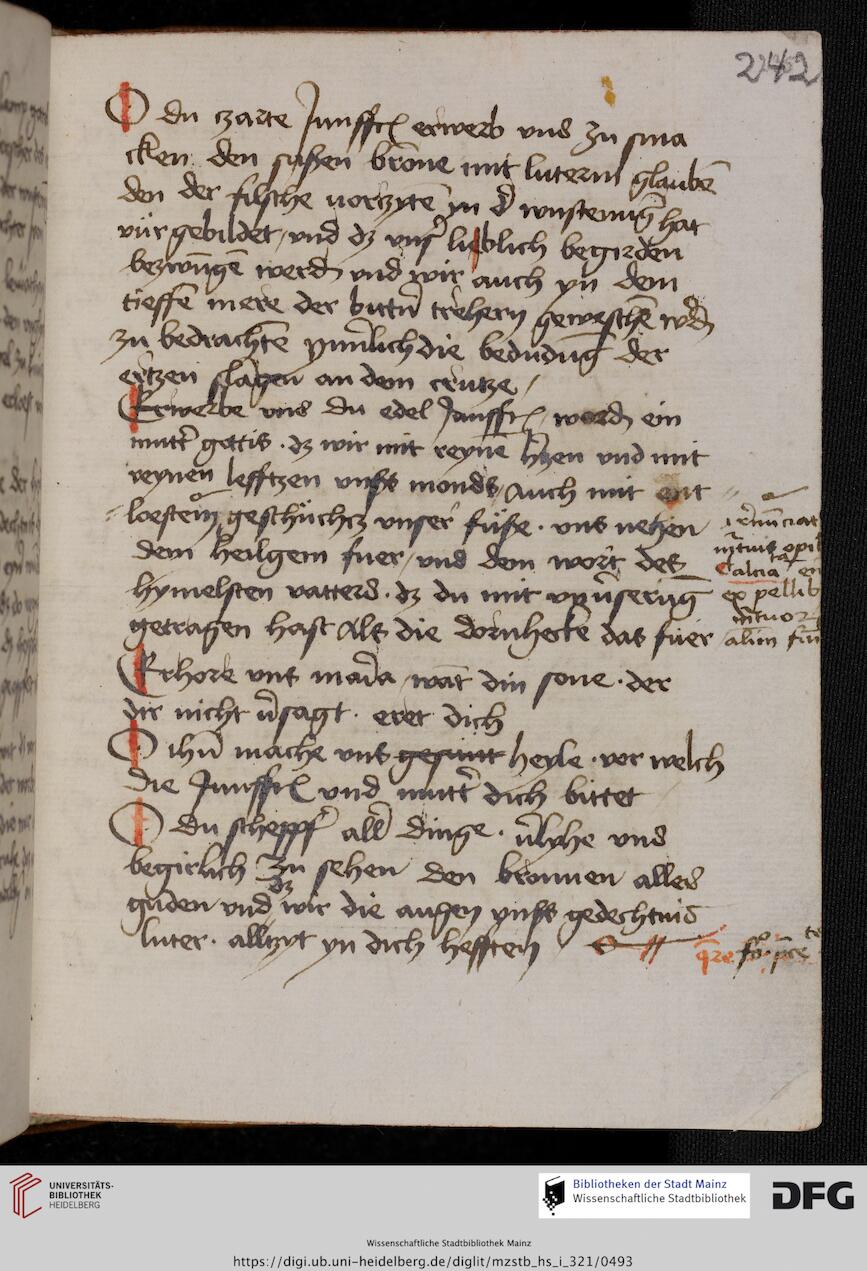 242
O du czarte Junffr erwerb vns zu sma
cken den sußen brone mit luterm glaubē
den der filsche vorczytē yn d wustenūg hat
vür gebildet, vnd dz vnsr lieblich begirden
bezwūgē werdn vnd wir auch yn dem
tieffen mere der bittn trehern geweschē wdn
zu bedrachtē ynnrlich die bedudūg der
ertzen slagen an dem crutze,
Erwerbe vns du edel Junffr, wordn ein
muttr gottis. dz wir mit reynē hrzen vnd mit
reynen lefftzen vnsrs monds, auch mit ent
loesten geschüchcz vnser füße. vns nehen
dem heilgem fuer, vnd dem wort des
hymelsten vatters. dz du mit vnuserūg
getragen hast Als die dornhecke das fuer
Erhore vns maria, wāt din sone. der
dir nicht vsagt. eret dich
O ihū mache vns gesunt heyle. vor welch
die Junffr vnd muttr dich bittet
O du scheppfr allr dinge. vlyhe vns
begirlich zu sehen den bronnen alles
guden vnd dz wir die augen vnsrs gedechtnis
luter. alltzyt yn dich hefften
Calcia
ex pellib
UNIVERSITÄTS-
BIBLIOTHEK
HEIDELBERG
Bibliotheken der Stadt Mainz
Wissenschaftliche Stadtbibliothek
DFG
Wissenschaftliche Stadtbibliothek Mainz
https://digi.ub.uni-heidelberg.de/diglit/mzstb_hs_i_321/0493